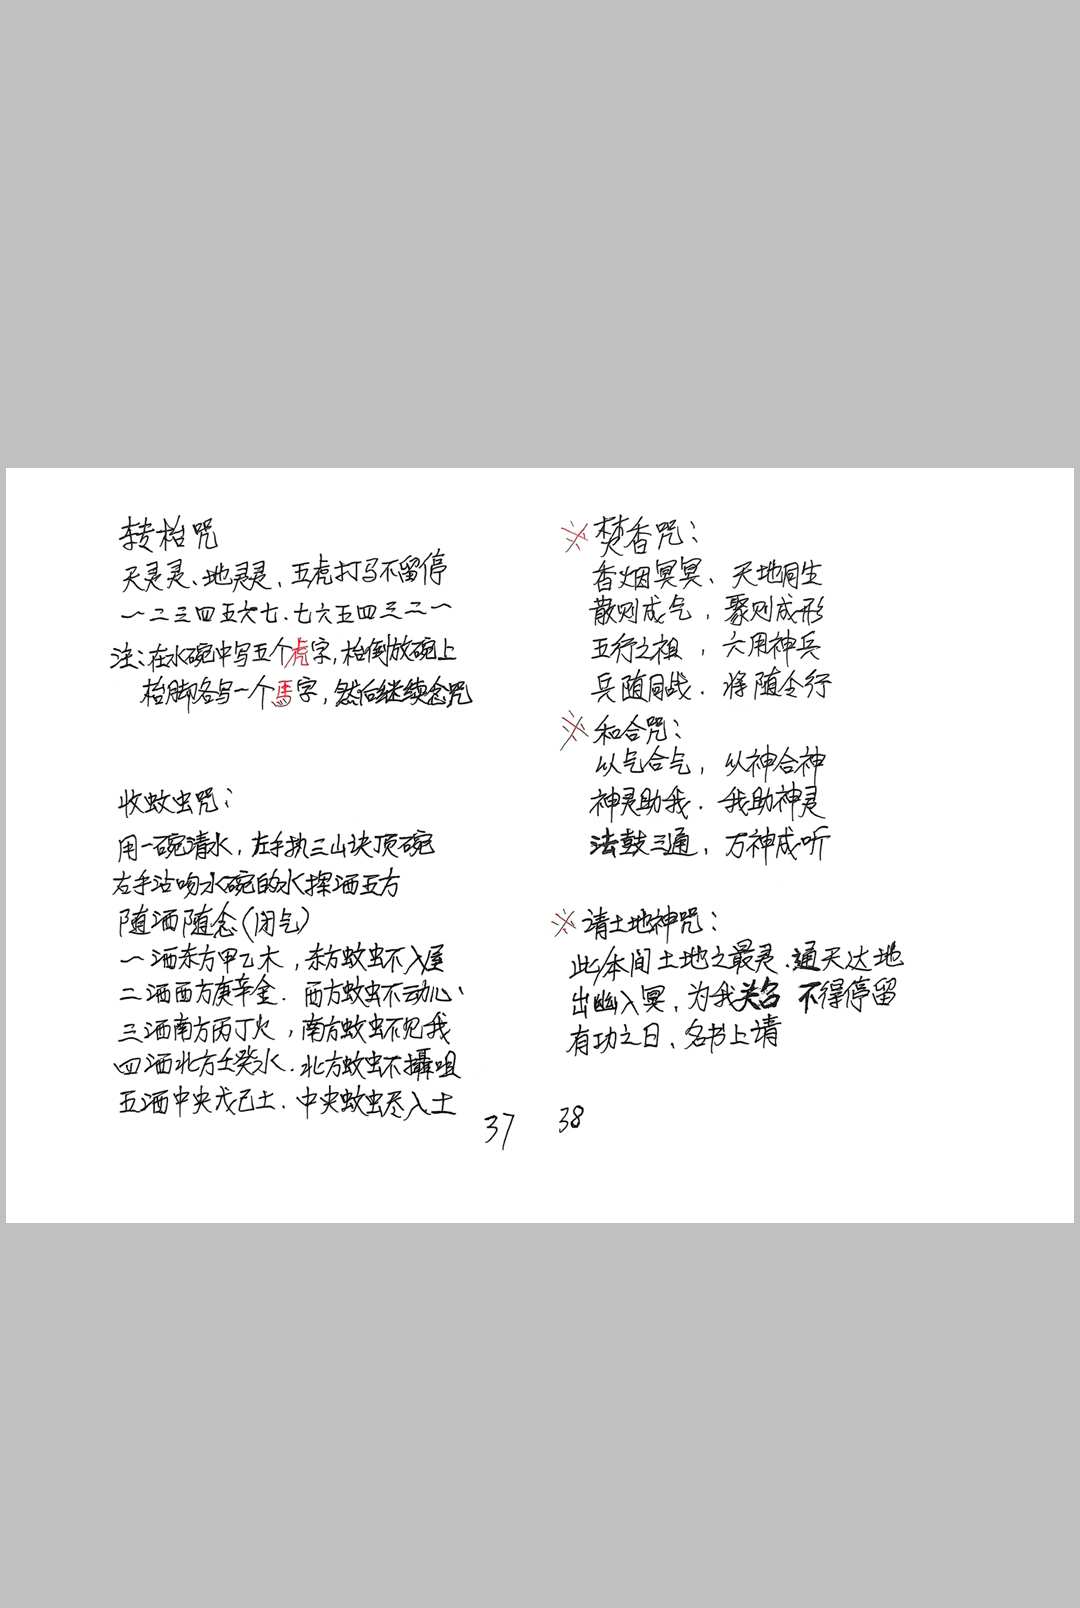 转枱咒
天灵灵、地灵灵、五虎打马不留停
一二三四五六七.七六五四三二一
注:在水碗中写五个虎字,枱倒放碗上
枱脚各写一个馬字,然后继续念咒
收蚊虫咒:
用一碗清水,左手执三山诀顶碗
右手沾吻水碗的水挥洒五方
随洒随念(闭气)
一洒东方甲乙木,东方蚊虫不入屋
二洒西方庚辛金.西方蚊虫不动心.
三洒南方丙丁火,南方蚊虫不见我
四洒北方壬癸水.北方蚊虫不攝咀
五洒中央戊己土.中央蚊虫尽入土
37
※焚香咒:
香烟冥冥、天地同生
散则成气,聚则成形
五行之祖,六甲神兵
兵随同战.将随令行
※和合咒:
以气合气,以神合神
神灵助我.我助神灵
法鼓三通,万神咸听
※请土地神咒:
此本间土地之最灵.通天达地
出幽入冥,为我关召 不得停留
有功之日、名书上请
38